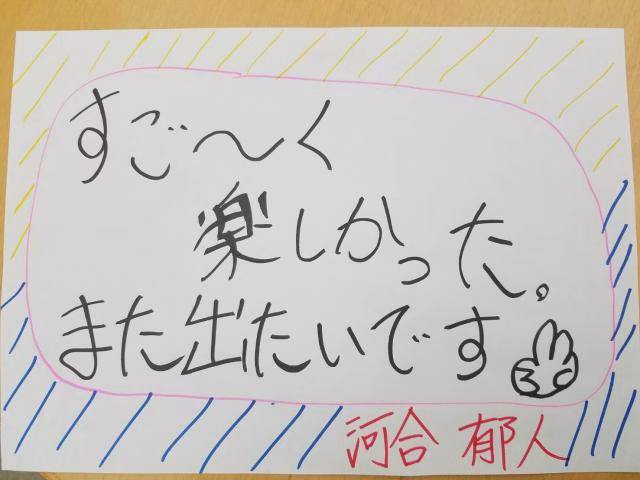 すご〜く
楽しかった。
また出たいです
河合 郁人